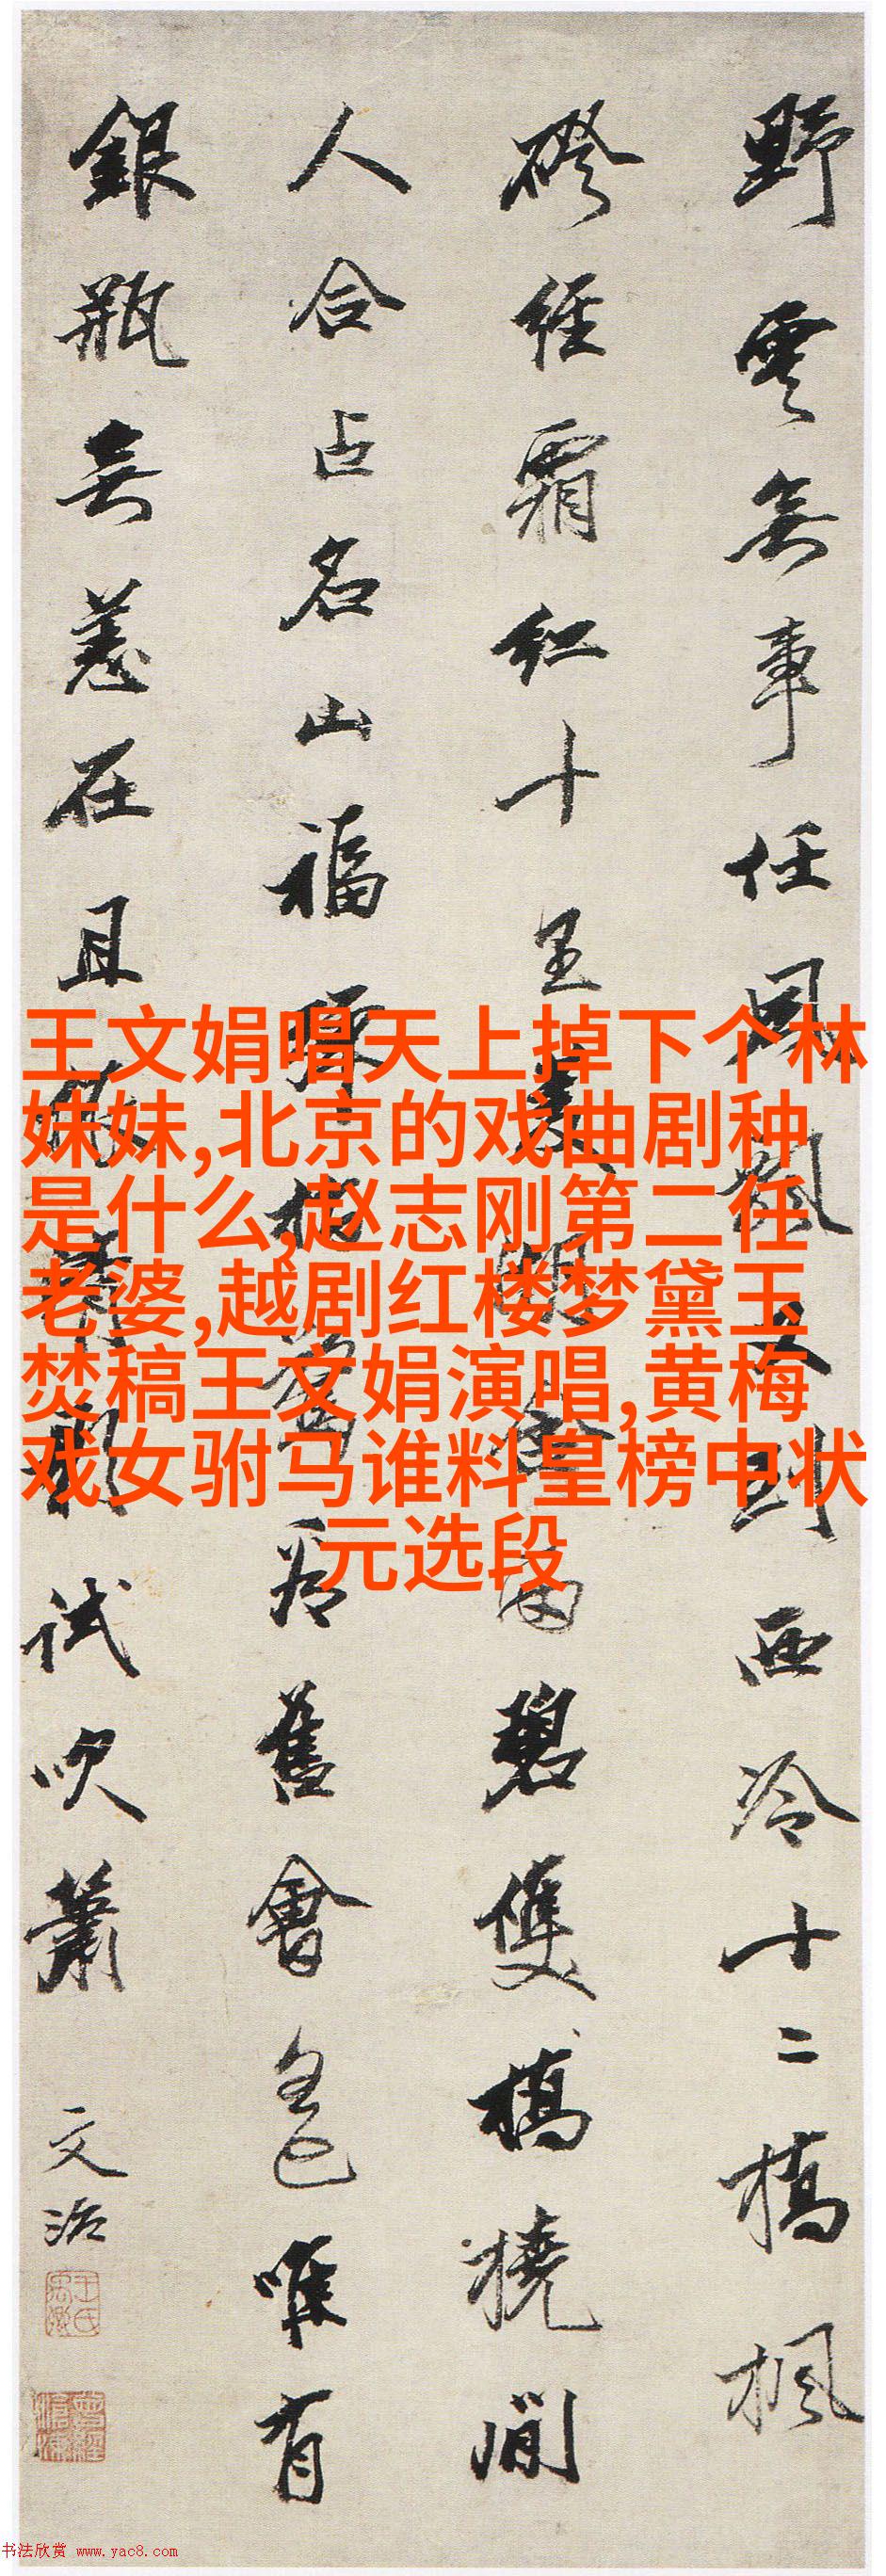 野雲無事任風飄又到西泠十二橋楓
磴經霜紅十里裏湖雨碧雙橋橈間
人合占名山福舊會已唯有
銀瓶無恙在且影試吹簫
文治
王氏禹卿
曾經滄海
王文娟唱天上掉下个林
妹妹,北京的戏曲剧种
是什么,赵志刚第二任
老婆,越剧红楼梦黛玉
焚稿王文娟演唱,黄梅
戏女驸马谁料皇榜中状
元选段
书法欣赏 www.yac8.com